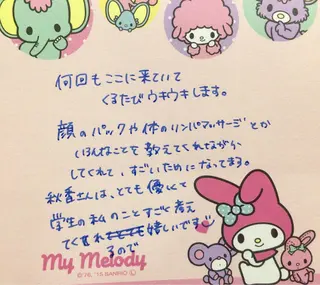 何回もここに来ていて
くるたびウキウキします。
顔のパックや体のリンパマッサージとか
いろんなことを教えてくれながら
してくれて、すごいためになってます。
秋香さんは、とても優しくて
学生の私のことすごく考え
てくれ
るので
嬉しいです
My Melody
© '15 SANRIO